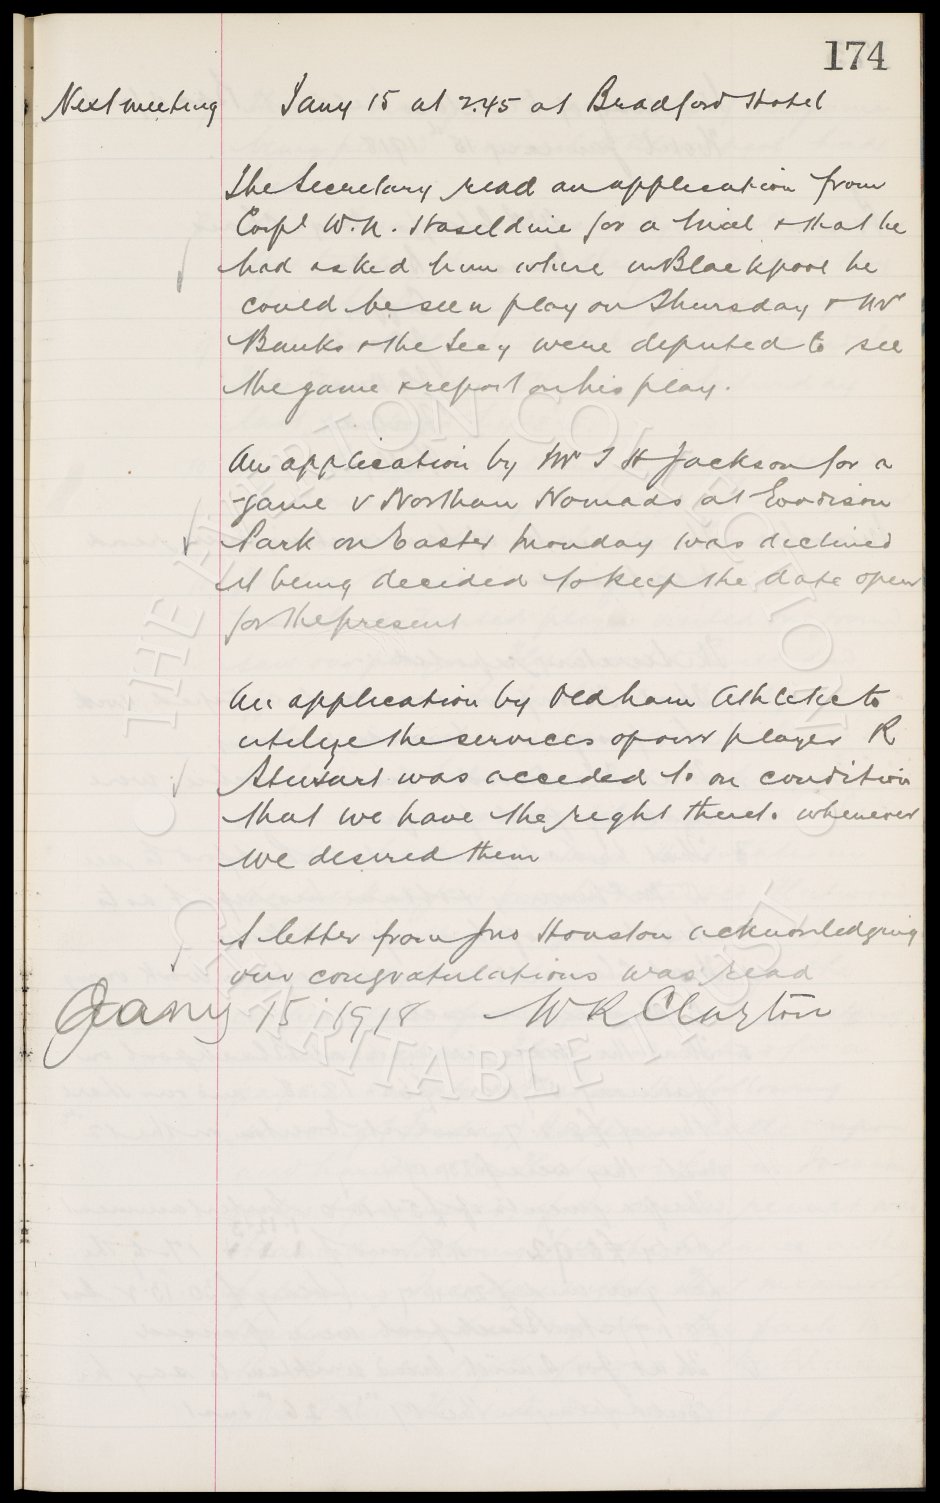 174
Next meeting Jany 15 at 2.45 at Bradford Hotel
The Secretary read an application from
Corpl W. N. Haseldine for a trial & that he
had asked him where in Blackpool he
could be seen play on Thursday & Mr
Banks & the Secy were deputed to see
the game & report on his play.
An application by Mr T H Jackson for a
game v Northern Nomads at Goodison
Park on Easter Monday was declined
it being decided to keep the date open
for the present
An application by Oldham Athletic to
utilize the services of our player R
Stewart was acceded to on condition
that we have the right thereto whenever
we desired them
A letter from Jno Houston acknowledging
our congratulations was read
Jany 15 1918 W R Clayton
© THE EVERTON COLLECTION
CHARITABLE TRUST